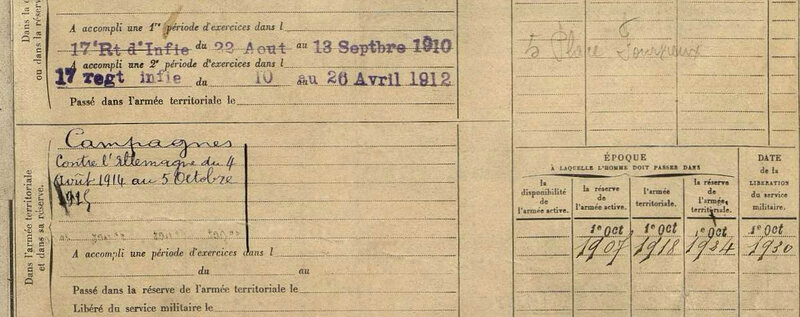 Dans la
ou dans la réserve
A accompli une 1re période d'exercices dans l
17e Rt d'Infie du 22 Aout au 13 Septbre 1910
A accompli une 2e période d'exercices dans l
17 regt infie du 10 au 26 Avril 1912
Passé dans l'armée territoriale le
5 Place
Dans l'armée territoriale
et dans sa réserve.
Campagnes
Contre l'Allemagne du 4
Août 1914 au 5 Octobre
1915
A accompli une période d'exercices dans l
du au
Passé dans la réserve de l'armée territoriale le
Libéré du service militaire le
ÉPOQUE
À LAQUELLE L'HOMME DOIT PASSER DANS
DATE
de la
LIBÉRATION
du service
militaire.
la
disponibilité
de l'armée
active.
la réserve
de
l'armée active.
l'armée
territoriale.
la réserve
de
l'armée
territoriale.
1e Oct 1e Oct 1e Oct 1e Oct
1907 1918 1924 1930